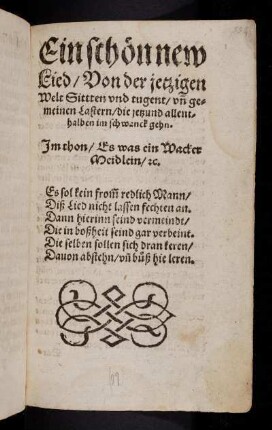 Ein schön new
Lied / Von der jetzigen
Welt Sittten vnd tugent / vñ ge-
meinen Lastern / die jetzund allent-
halben im schwanck gehn.
Im thon / Es was ein Wacker
Meidlein / ꝛc.
Es sol kein from̃ redlich Mann /
Diß Lied nicht lassen fechten an.
Dann hierinn seind vermeindt /
Die in boßheit seind gar verbeint.
Die selben sollen sich dran keren /
Dauon abstehn / vñ bůß hie leren.